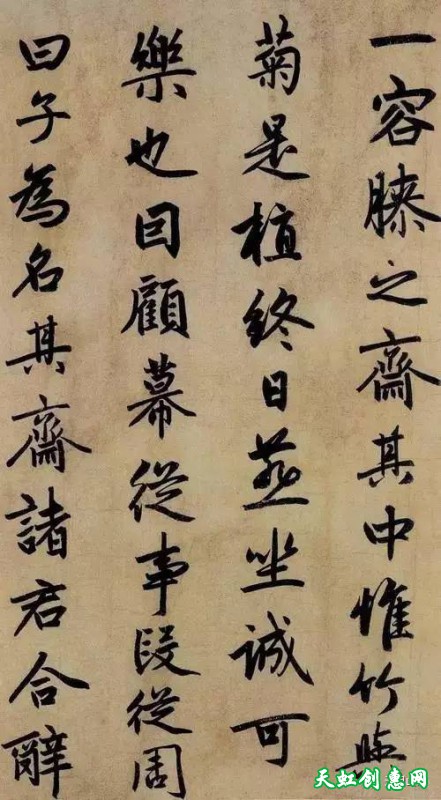 一容膝之齋其中惟竹與
菊是植終日燕坐誠可
樂也囘顧幕從事段從周
曰子為名其齋諸君合辭
天虹创惠网